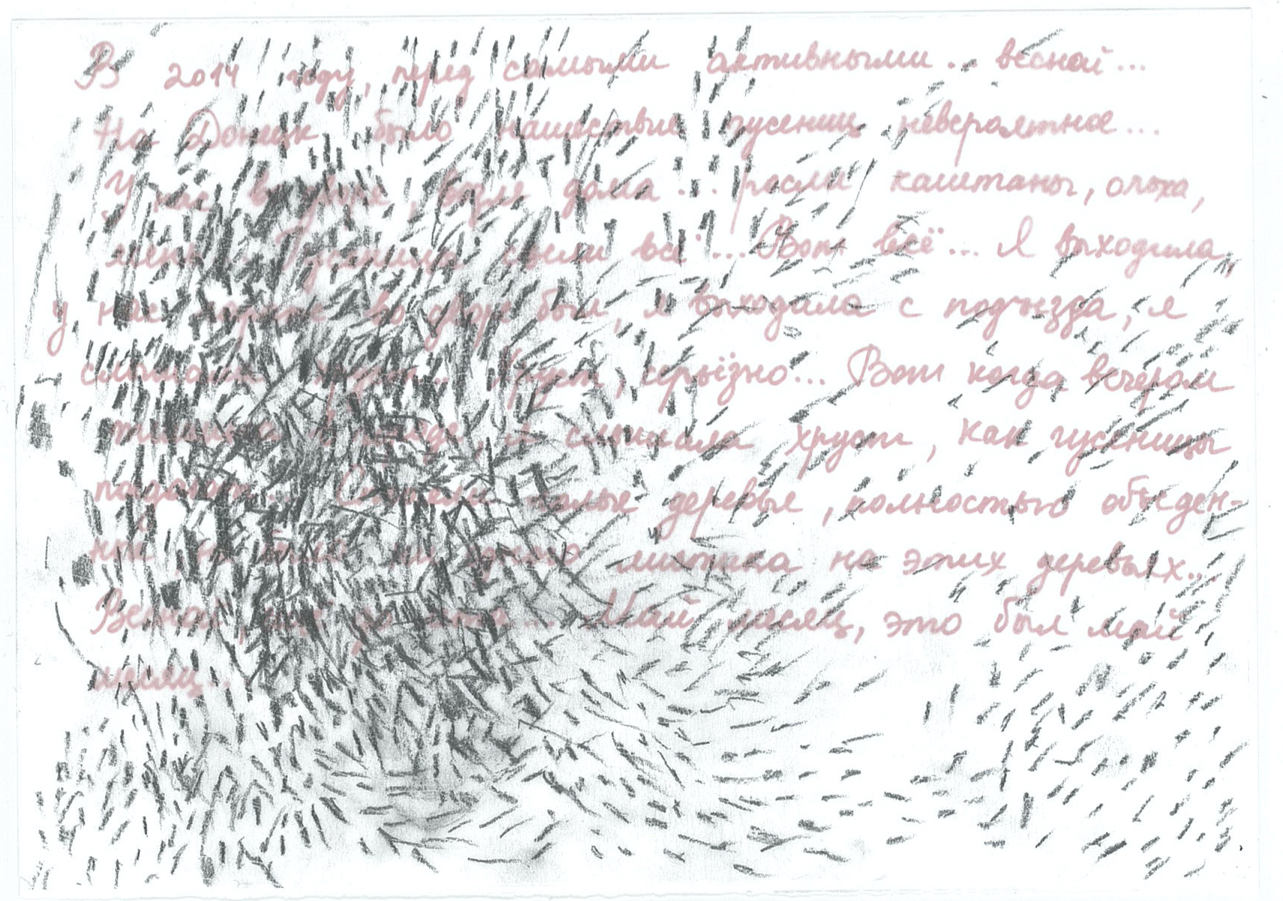 В 2014 году, перед самыми активными.. весной...
На Донецк было нашествие гусениц невероятное...
У нас в, возле дома... росли каштаны, ольха,
Гусеницы съели всё... Вот всё... Я выходила,
у нас во дворе был, я выходила с подъезда, я
хруст... Хруст, серьёзно... Вот когда вечером
я слышала хруст, как гусеницы
падают... голые деревья, полностью объеден-
ные, ни одного листика на этих деревьях...
Весной, Май месяц, это был май
месяц..